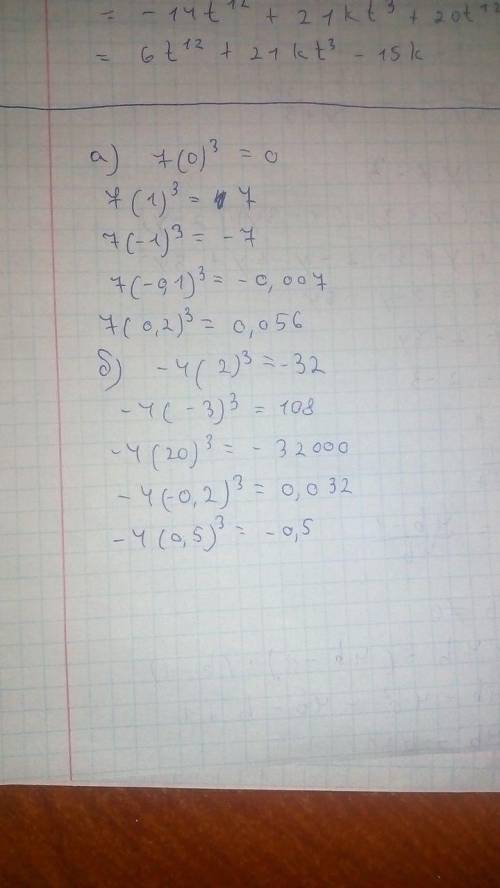 = - 14t¹² + 21kt³ + 20t¹²
= 6t¹² + 21kt³ - 15k
а) 7(0)³ = 0
7(1)³ = 7
7(-1)³ = -7
7(-0,1)³ = -0,007
7(0,2)³ = 0,056
б) -4(2)³ = -32
-4(-3)³ = 108
-4(20)³ = -32000
-4(-0,2)³ = 0,032
-4(0,5)³ = -0,5